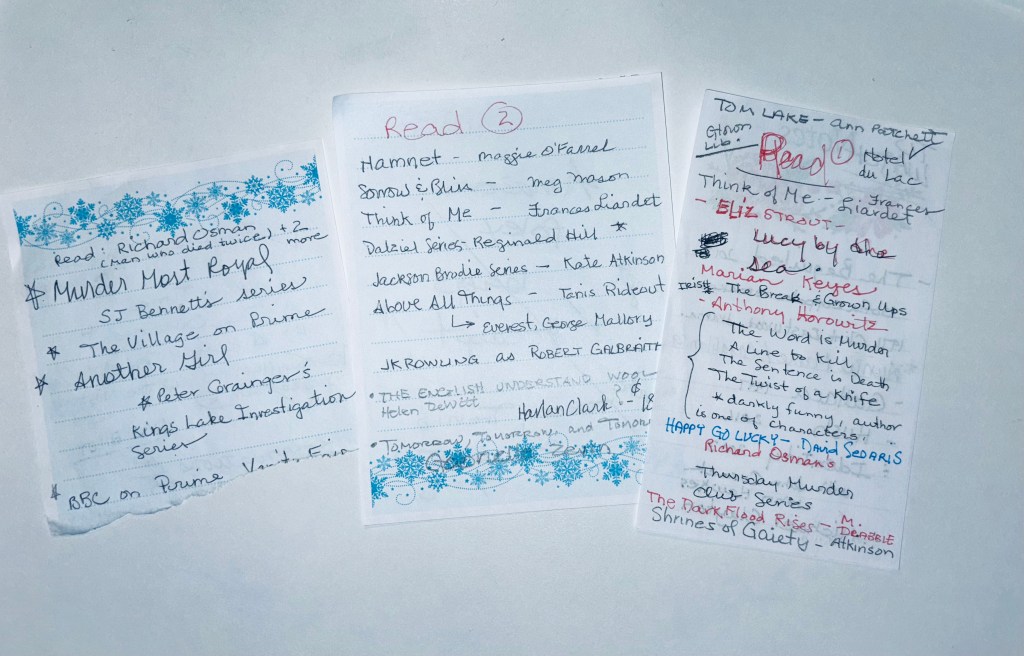 Richard Osman
Read: (Man who died twice) + 2 more
* Murder Most Royal
SJ Bennett's series
* The Village on Prime
* Another Girl
* Peter Grainger's
Kings Lake Investigation
series
* BBC on Prime
Read 2
Hamnet - Maggie O'Farrel
Sorrow & Bliss - Meg Mason
Think of Me - Frances Liardet
Dalziel Series - Reginald Hill *
Jackson Brodie Series - Kate Atkinson
Above All Things - Tanis Rideout
↳ Everest, George Mallory
JK ROWLING as ROBERT GALBRAITH
• THE ENGLISH UNDERSTAND WOOL
Helen DeWitt
Harlan Clark
• Tomorrow, Tomorrow, and Tomorrow
Gabrielle Zevin
TOM LAKE - Ann Patchett
Lib.
Read 1
Hotel ✓
du Lac
Think of Me - Frances
Liardet
- ELIZ STROUT -
Lucy by the
sea.
Marian Keyes
IRISH The Break & Grown Ups
- Anthony Horowitz
The Word is Murder
A Line to Kill
The Sentence is Death
The Twist of a Knife
* darkly funny, author
is one of characters.
HAPPY GO LUCKY - DAVID SEDARIS
Richard Osman's
Thursday Murder
Club Series
The Dark Flood Rises - M. DRABBLE
Shrines of Gaiety - Atkinson